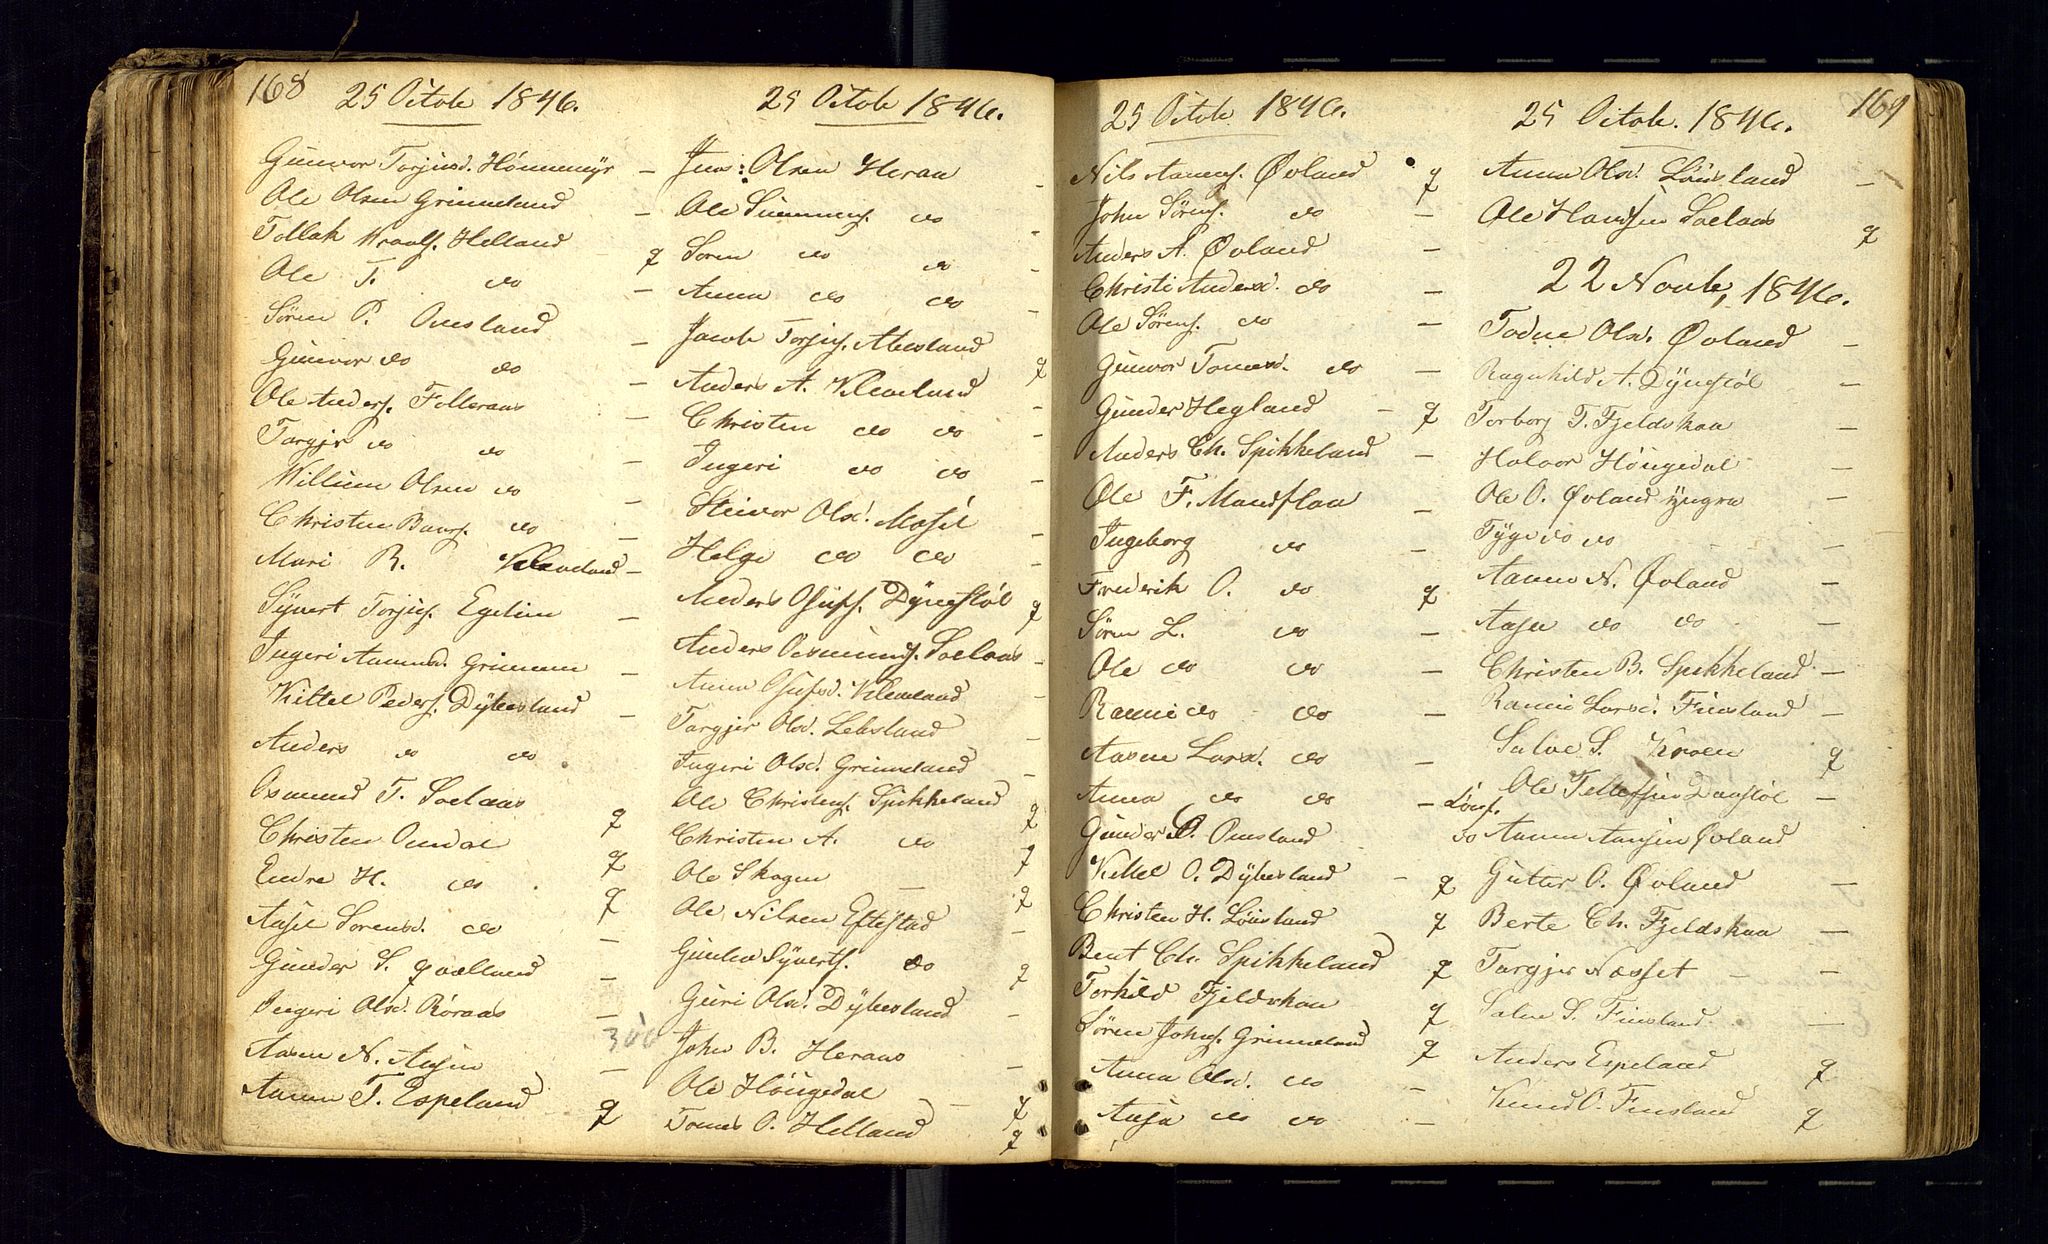 168
25 Octob 1846.
Gunvor Torjusd. Hønnemyr —
Ole Olsen Grinneland —
Tollak Kraals. Helland q
Ole T. do —
Søren P. Omsland —
Gunvor do do —
Ole Anders. Folleraas —
Targjer do do —
Willum Olsen do —
Christen Bents. do —
Mari R. Kleveland —
Syvert Torjus. Egelim —
Ingeri Aanensd. Grimmen —
Kittel Peders. Dybesland —
Anders do do
Osmund T. Soelaas q
Christen Omdal q
Endre H. do q
Aasel Sorensd. do —
Gunder S. qvælland —
Ingeri Olsd. Røraas —
Aasen N. Aasen —
Aanen T. Espeland q
25 Octob 1846.
Jens: Olsen Heraa —
Ole Simmens. do —
Soren do do —
Anna do do —
Jacob Torjus. Abesland q
Anders A. Kleveland —
Christen do do —
Ingeri do do —
Steinvor Olsd. Mosel —
Helge do do —
Anders Osufs. Dyngstøl q
Anders Osmunds. Soelaas —
Anna Osufsd. Kleveland —
Targjer Olsd. Lebesland —
Ingeri Olsd. Grinneland —
Ole Christens. Spikkeland q
Christen A. do q
Ole Skogen — q
Ole Nilsen Eftestad —
Gunleo Syverts. do q
Guri Olsd. Dybesland —
300
John B. Heraas —
Ole Høugedal — q
Tomes O. Helland q
25 Octob 1846.
Nils Aanens. Øvland q
John Sørens. do —
Anders A. Øvland —
Christi Andersd. do —
Ole Sørens. do —
Gunvor Tomesd. do —
Gunder Hegland — q
Anders Ch. Spikkeland —
Ole F. Mandflaa —
Ingeborg do —
Frederik O. do q
Søren L. do —
Ole do do —
Ranni do do —
Aasne Larsd. do —
Anna do do —
Gunder O. Omsland
Kittel O. Dybesland — q
Christen H. Lønsland q
Bent Ch. Spikkeland q
Torkild Fjeldskaa q
Søren Johns. Grinneland q
Anna Olsd. do —
Aasa do do —
169
25 Octob. 1846.
Anna Olsd. Lønsland —
Ole Hansen Soelaas q
22 Novb, 1846.
Todne Olsd. Øvland —
Ragnhild A. Dyngstøl —
Torborg T. Fjeldskaa —
Halvor Høugedal —
Ole O. Øvland yngra —
Tyge do do —
Aanen N. Øvland —
Aase do do —
Christen B. Spikkeland —
Ranni Larsd. Finsland —
Salve S. Kroen q
Ole Tellefsen Daastøl —
Løns.
do Aanen Aansen Øvland
Gutter O. Øvland —
Berte Ch. Fjeldskaa —
Targjer Næsset — —
Salve S. Finsland —
Anders Espeland q
Knud O. Finsland q